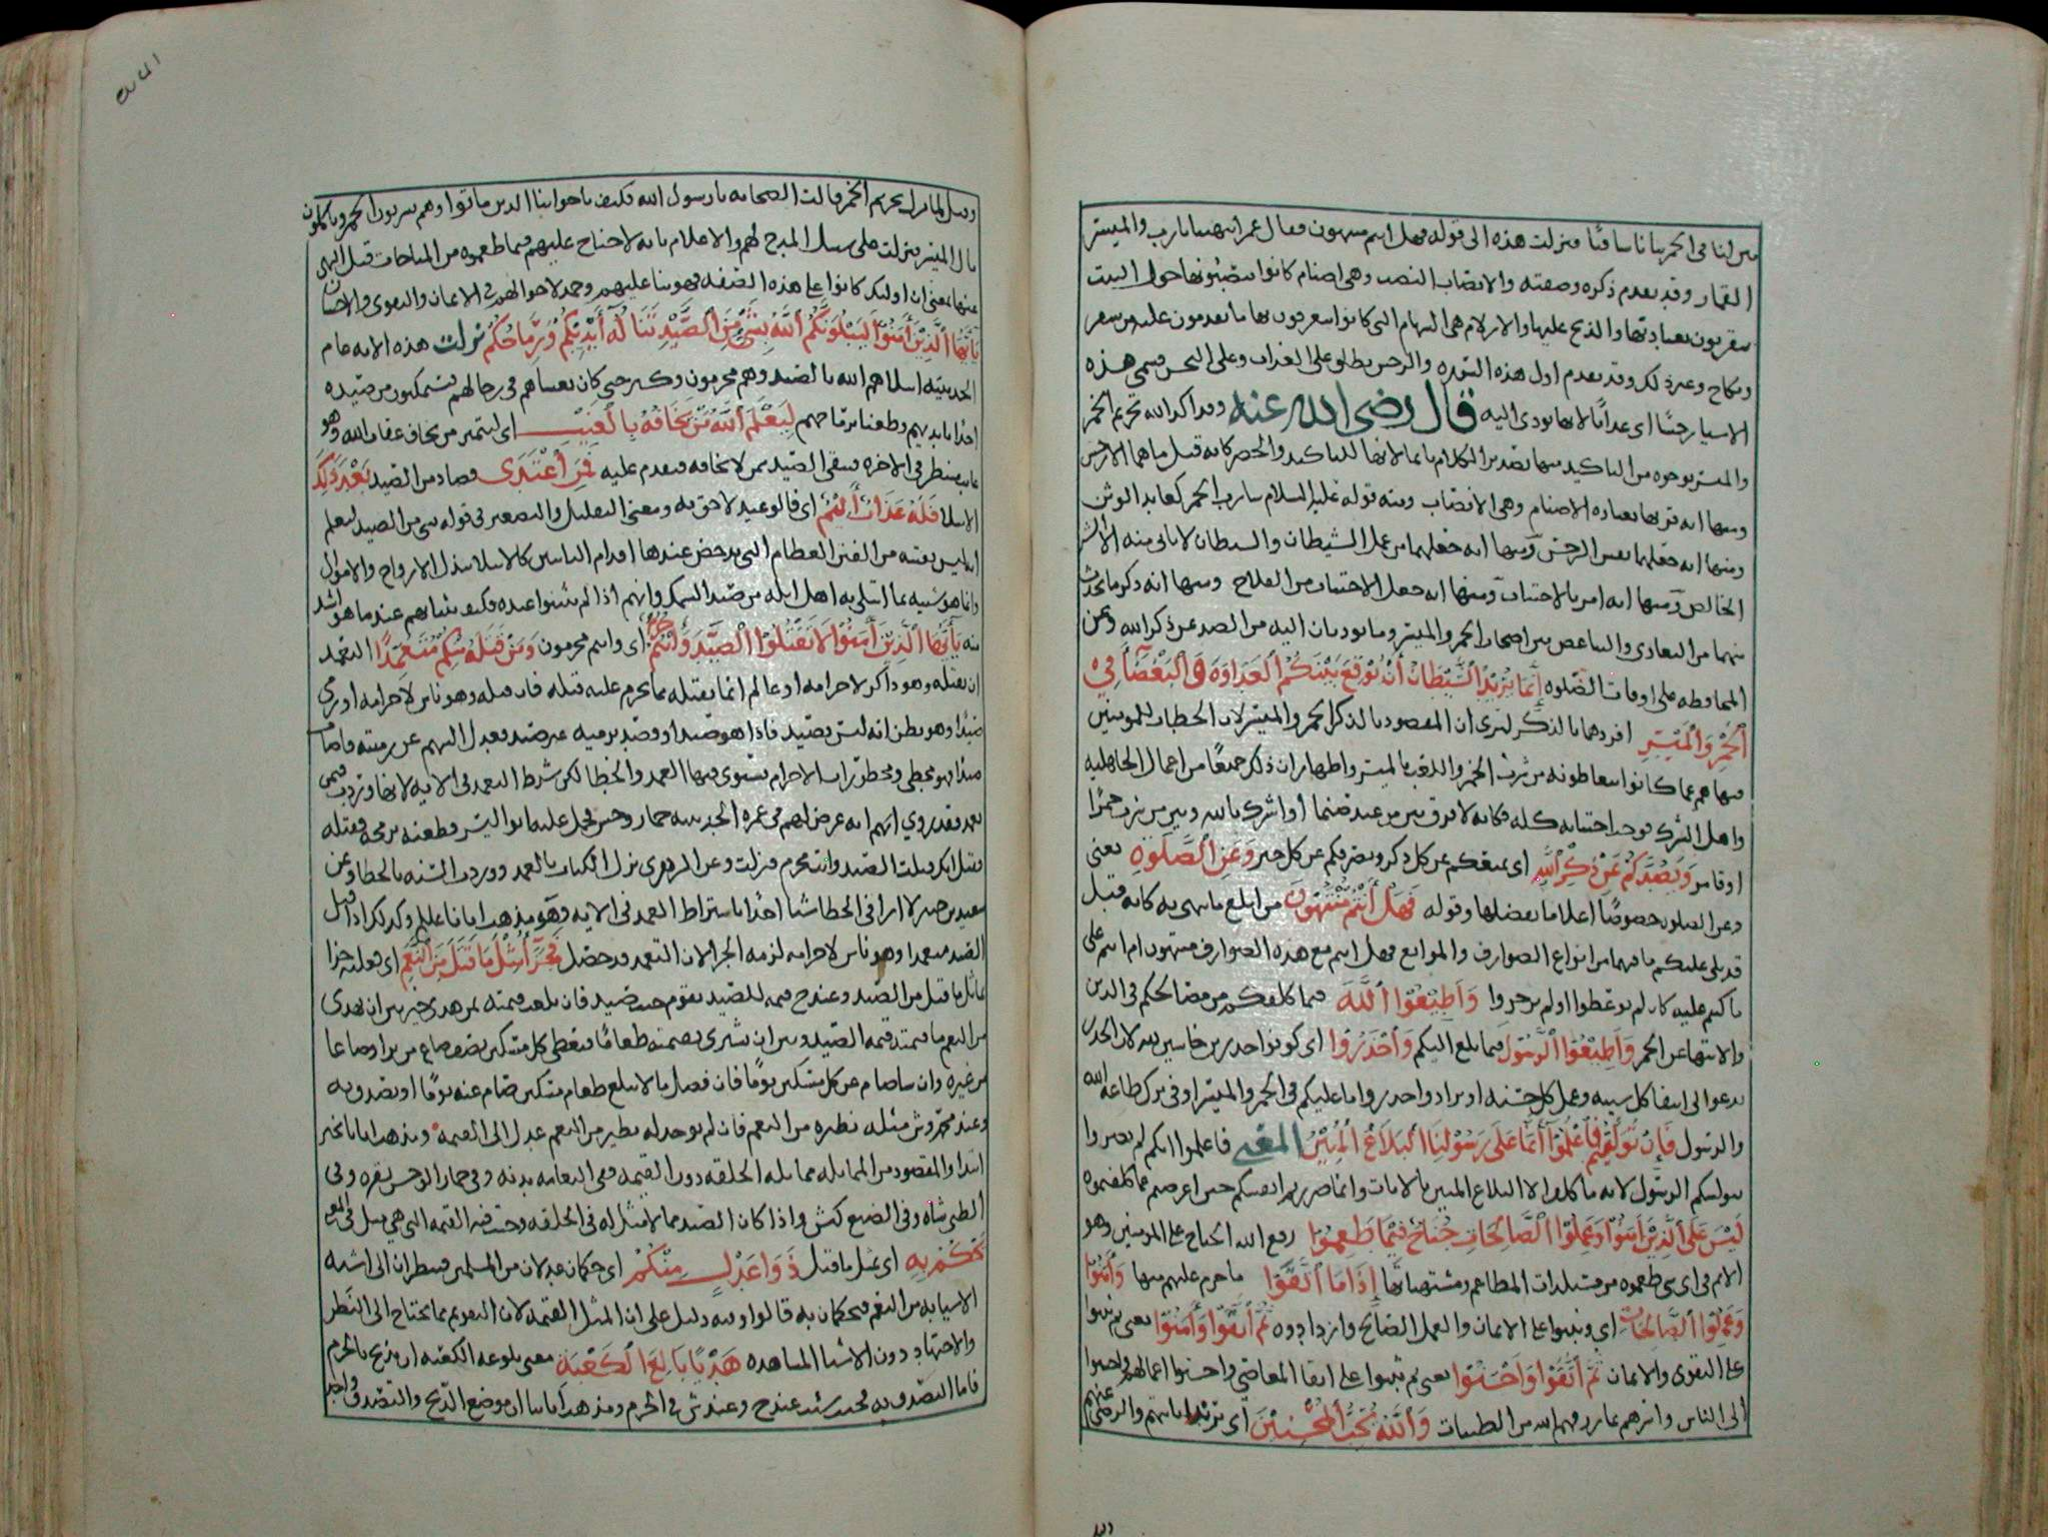 بين لنا في الخمر بيانا شافيا فنزلت هذه الى قوله فهل انتم منتهون فقال عمر انتهينا يارب والميسر
القمار وقد تقدم ذكره وصفته والانصاب النصب وهي اصنام كانوا ينصبونها حول البيت
يتقربون بعبادتها والذبح عليها والازلام هي السهام التي كانوا يتعرفون بها ما يقدمون عليه من سفر
ونكاح وغير ذلك وقد تقدم اول هذه السوره والرجس يطلق على العذاب وعلى النجس فسمى هذه
الاشيا رجسا اي عذابا لانها تودي اليه قال رضي الله عنه وقد اكد الله تحريم الخمر
والميسر بوجوه من التاكيد منها تصدير الكلام بانما لانها للتاكيد والحصر كانه قيل ما هما الا رجس
ومنها انه قرنها بعباده الاصنام وهي الانصاب ومنه قوله عليه السلام شارب الخمر كعابد الوثن
ومنها انه جعلهما نفس الرجس ومنها انه جعلهما من عمل الشيطان والشيطان لا ياتي منه الا الشر
الخالص ومنها انه امر بالاجتناب ومنها انه جعل الاجتناب من الفلاح ومنها انه ذكر ما يحدث
منهما من التعادي والتباغض بين اصحاب الخمر والميسر وما يوديان اليه من الصد عن ذكر الله وعن
المحافظه على اوقات الصلوه إنما يريد الشيطان أن يوقع بينكم العداوة والبغضاء في
الخمر والميسر افردهما بالذكر ليرى ان المقصود بالذكر الخمر والميسر لان الخطاب للمومنين
فنهاهم عما كانوا يتعاطونه من شرب الخمر واللعب بالميسر واظهار ان ذلك جميعا من اعمال الجاهليه
واهل الشرك فوجب اجتنابه كله فكانه لا فرق بين من عبد صنما أو اشرك بالله وبين من شرب خمرا
او قامر ويصدكم عن ذكر الله اي يمنعكم عن كل ذكر ويصرفكم عن كل خير وعن الصلوة يعني
وعن الصلوه خصوصا اعلاما بفضلها وقوله فهل أنتم منتهون من ابلغ ما ينهى به كانه قيل
قد تلي عليكم ما فيهما من انواع الصوارف والموانع فهل انتم مع هذه الصوارف منتهون ام انتم على
ما كنتم عليه كان لم توعظوا او لم تزجروا وأطيعوا الله فيما كلفكم من مصالحكم في الدين
والانتها عن الخمر وأطيعوا الرسول فيما بلغ اليكم وأحذروا اي كونوا حذرين خاشين لله لان الحذر
يدعوا الى اتقا كل سيئه وعمل كل حسنه او يراد واحذروا ما عليكم في الخمر والميسر او في ترك طاعه الله
والرسول فإن توليتم فأعلموا أنما على رسولنا البلاغ المبين المعنى فاعلموا انكم لم تضروا
بتوليكم الرسول لانه ما كلف الا البلاغ المبين بالايات وانما ضررتم انفسكم حين اعرضتم عما كلفتموه
ليس على الذين امنوا وعملوا الصالحات جناح فيما طعموا رفع الله الجناح على المومنين وهو
الاثم في اي شي طعموه من مستلذات المطاعم ومشتهياتها إذا ما أتقوا ما حرم عليهم منها وأمنوا
وعملوا الصالحات اي وثبتوا على الايمان والعمل الصالح وازدادوه ثم أتقوا وأمنوا يعني ثم ثبتوا
على التقوى والايمان ثم أتقوا وأحسنوا يعني ثم ثبتوا على اتقا المعاصي واحسنوا اعمالهم واحسنوا
الى الناس وانرهم بما رزقهم الله من الطيبات والله يحب المحسنين اي
وقيل لما نزل تحريم الخمر قالت الصحابه يا رسول الله فكيف باخواننا الذين ماتوا وهم يشربون الخمر وياكلون
مال الميسر فنزلت على سبيل المدح لهم والاعلام بانه لا جناح عليهم فيما طعموه من المباحات قبل النهي
عنها بمعنى ان اولئك كانوا على هذه الصفه فهو ثنا عليهم وحمد لاحوالهم في الايمان والتقوى والاحسان
يأيها الذين أمنوا ليبلونكم الله بشئ من الصيد تناله أيديكم ورماحكم نزلت هذه الايه عام
الحديبيه ابتلاهم الله بالصيد وهم محرمون وكثر حتى كان يغشاهم في رحالهم فيتمكنون من صيده
اخذا بايديهم وطعنا برماحهم ليعلم الله من يخافه بالغيب اي ليتميز من يخاف عقاب الله وهو
غايب منتظر في الاخره فيتقي الصيد ممن لا يخافه فيقدم عليه فمن أعتدى فصاد من الصيد بعد ذلك
الابتلا فله عذاب أليم اي فالوعيد لاحق به ومعنى التقليل والتصغير في قوله بشي من الصيد ليعلم
انه ليس بفتنه من الفتن العظام التي تدحض عندها اقدام الثابتين كالابتلا ببذل الارواح والاموال
وانما هو شبيه بما ابتلي به اهل ايله من صيد السمك وانهم اذا لم يثبتوا عنده فكيف ثباتهم عند ما هو اشد
منه يأيها الذين أمنوا لا تقتلوا الصيد وأنتم حرم اي وانتم محرمون ومن قتله منكم متعمدا التعمد
ان يقتله وهو ذاكر لاحرامه او عالم انما يقتله مما يحرم عليه قتله فان قتله وهو ناس لاحرامه او رمى
صيدا وهو يظن انه ليس بصيد فاذا هو صيد او قصد برميه غير صيد فعدل السهم عن رميته فاصاب
صيدا فهو مخطي ومحظورات الاحرام يستوى فيها العمد والخطا لكن شرط التعمد في الايه لانها وردت فيمن
تعمد فقد روي انهم انه عرض لهم في عمره الحديبيه حمار وحش فحمل عليه ابو اليسر فطعنه برمحه فقتله
فقيل انك قتلت الصيد وانت محرم فنزلت وعن الزهري نزل الكتاب بالعمد ووردت السنه بالخطا وعن
سعيد بن جبير لا ارى في الخطا شيا اخذا باشتراط العمد في الايه وهو مذهب ابانا عليلم وكذلك اذا قتل
الصيد متعمدا وهو ناس لاحرامه لزمه الجزا لان التعمد قد حصل فجزآء مثل ما قتل من النعم اي فعليه جزا
يماثل ما قتل من الصيد وعند ح قيمه للصيد يقوم حيث صيد فان بلغت قيمته ثمن هدي خير بين ان يهدى
من النعم ما قيمته قيمه الصيد وبين ان يشترى بقيمته طعاما فيعطى كل مسكين نصف صاع من بر او صاعا
من غيره وان شا صام عن كل مسكين يوما فان فضل ما لا يبلغ طعام مسكين صام عنه يوما او تصدق به
وعند محمد وش مثله نظيره من النعم فان لم يوجد له نظير من النعم عدل الى القيمه ومذهب ابانا يخير
ابتدا والمقصود من المماثله مماثله الخلقه دون القيمه ففي النعامه بدنه وفي حمار الوحش بقره وفي
الظبي شاه وفي الضبع كبش واذا كان الصيد مما لا مثل له في الخلقه وجبت فيه القيمه التي هي مثل في المعنى
يحكم به اي بمثل ما قتل ذوا عدل منكم اي حكمان عدلان من المسلمين فينظران الى اشبه
الاشيا به من النعم فيحكمان به قالوا وفيه دليل على ان المثل القيمه لان التقويم مما يحتاج الى النظر
والاجتهاد دون الاشيا المشاهده هديا بالغ الكعبة معنى بلوغه الكعبه ان يذبح بالحرم
فاما التصدق به فحيث شيت عند ح وعند ش في الحرم ومذهب ابانا ان موضع الذبح والتصدق واحد